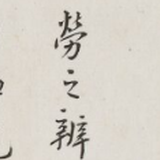 勞之辨